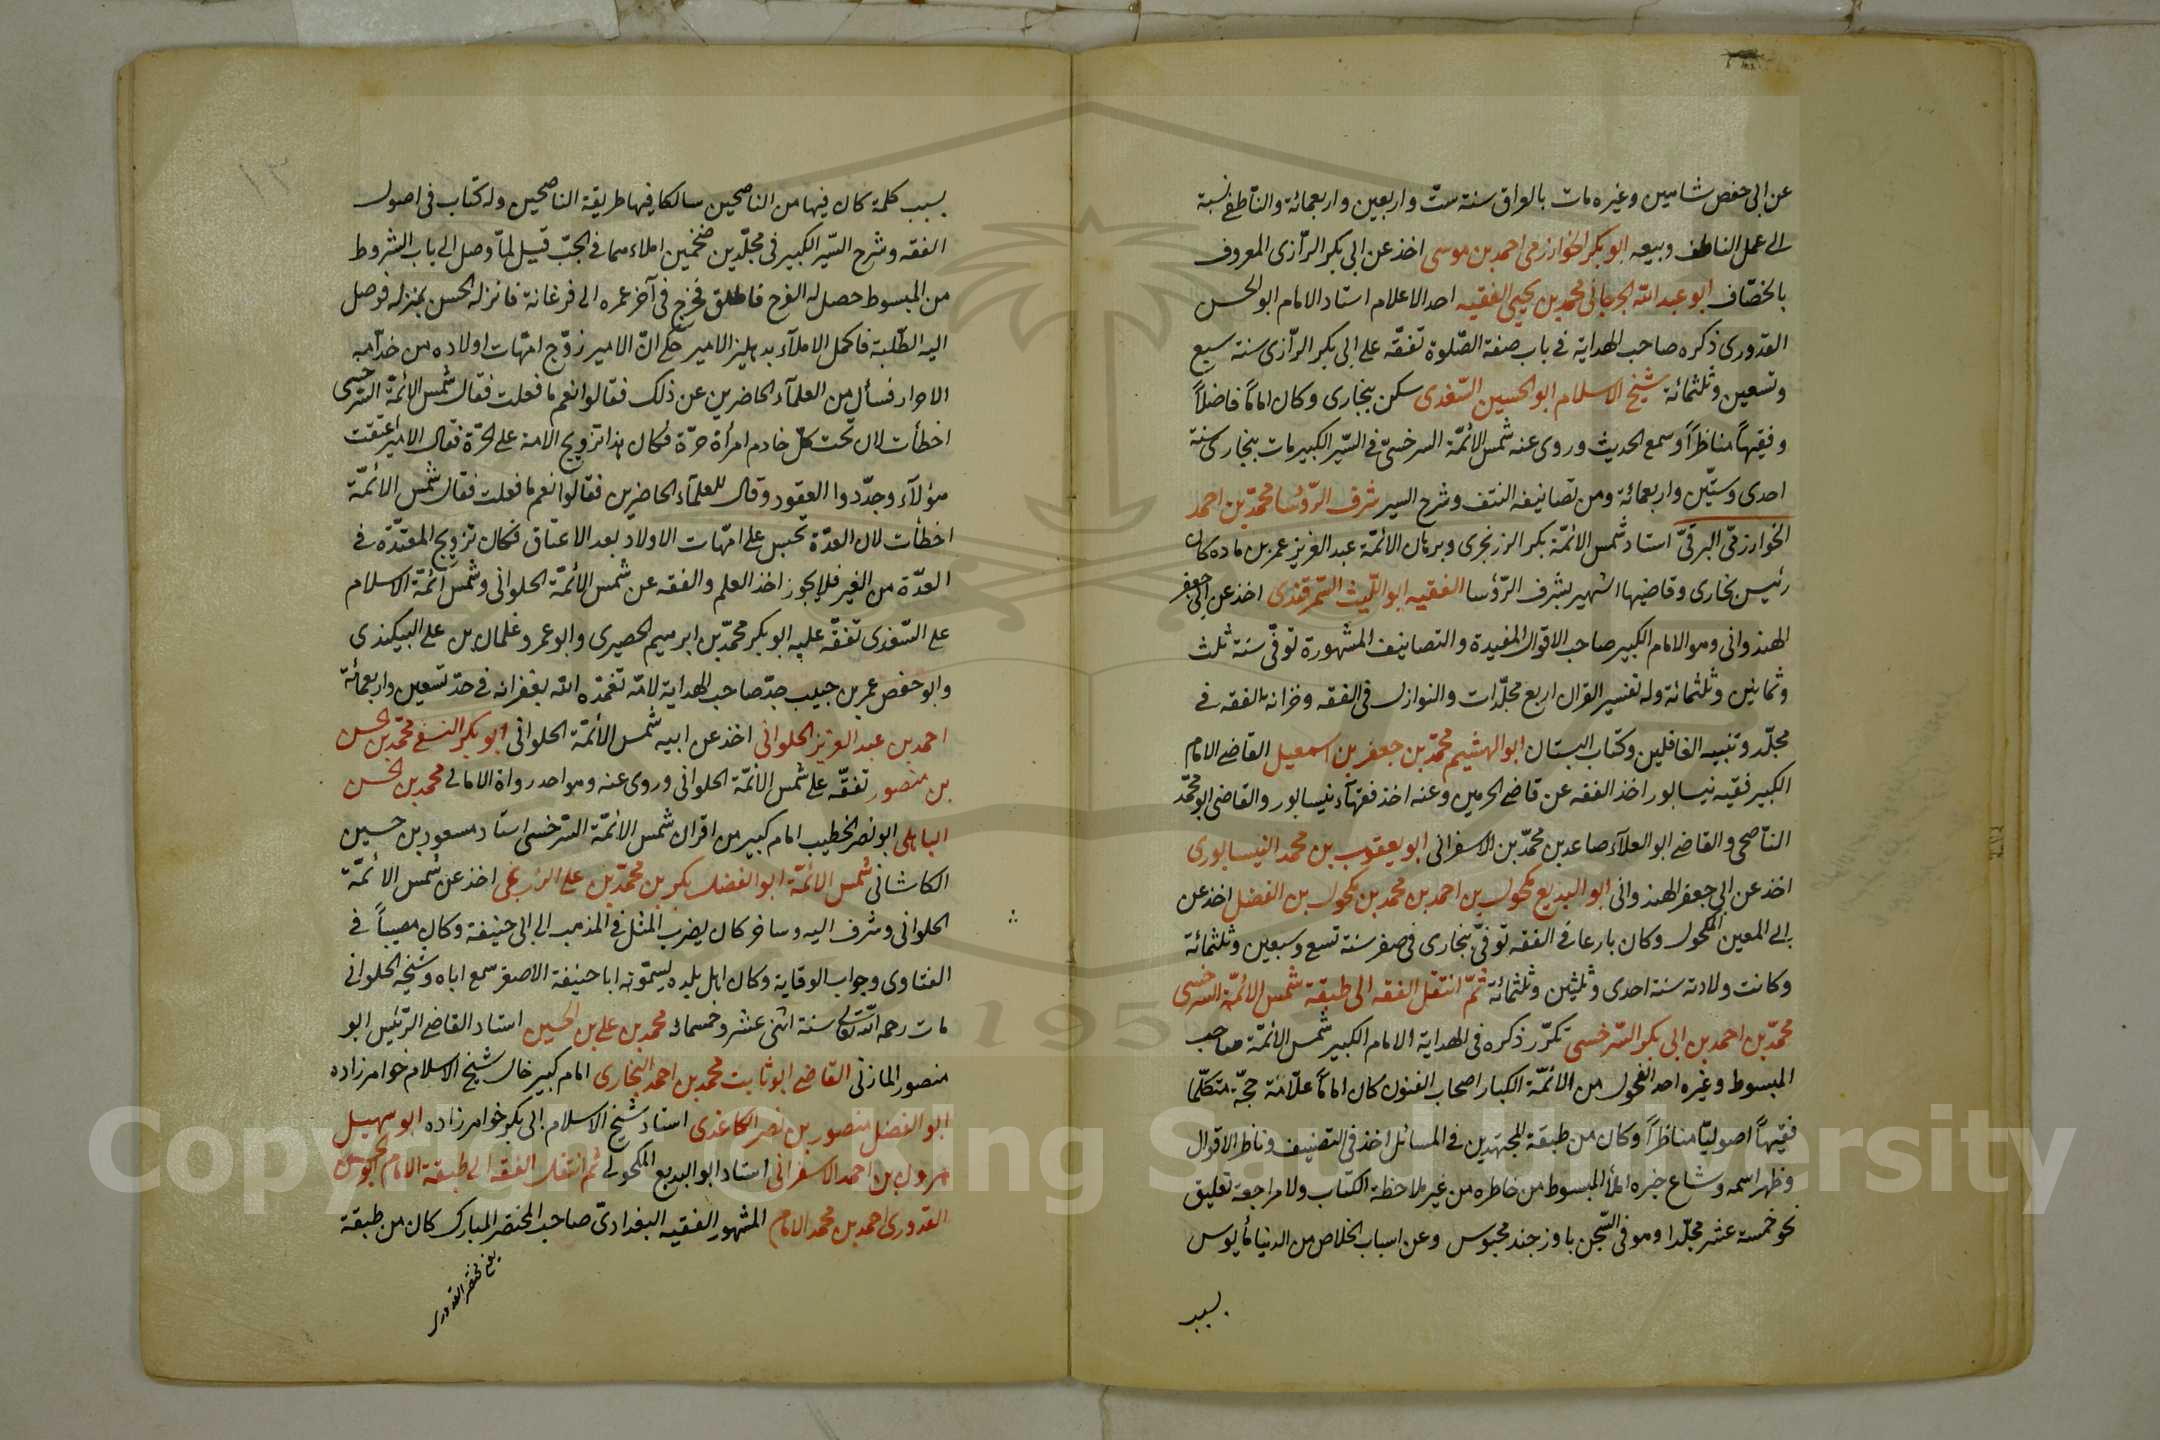 عن ابى حفص شاهين وغيره مات بالعراق سنة ست واربعين واربعمائة والناطفى نسبة
الى عمل الناطف وبيعه ابو بكر الخوارزمى احمد بن موسى اخذ عن ابى بكر الرازى المعروف
بالخصاف ابو عبد الله الجرجانى محمد بن يحيى الفقيه احد الاعلام استاد الامام ابو الحسن
القدورى ذكره صاحب الهداية فى باب صفة الصلوة تفقه على ابى بكر الرازى سنة سبع
وتسعين وثلثمائة شيخ الاسلام ابو الحسين السغدى سكن بخارى وكان اماما فاضلاً
وفقيهاً مناظراً وسمع الحديث وروى عنه شمس الائمة السرخسى فى السير الكبير مات ببخارى سنة
احدى وستين واربعمائة ومن تصانيفه النتف وشرح السير شرف الرؤسا محمد بن احمد
الخوارزمى البرقى استاد شمس الائمة بكر الزرنجرى وبرهان الائمة عبد العزيز عمر بن مازه كان
رئيس بخارى وقاضيها الشهير بشرف الرؤسا الفقيه ابو الليث السمرقندى اخذ عن ابى جعفر
الهندوانى وهو الامام الكبير صاحب الاقوال المفيدة والتصانيف المشهورة توفى سنة ثلث
وثمانين وثلثمائة وله تفسير القران اربع مجلدات والنوازل فى الفقه وخزانة الفقه فى
مجلد وتنبيه الغافلين وكتاب البستان ابو الهشيم محمد بن جعفر بن اسمعيل القاضى الامام
الكبير فقيه نيسابور اخذ الفقه عن قاضى الحرمين وعنه اخذ فقهآء نيسابور والقاضى ابو محمد
الناصحى والقاضى ابو العلآء صاعد بن محمد بن الاسفرانى ابو يعقوب بن محمد النيسابورى
اخذ عن ابى جعفر الهندوانى ابو البديع مكحول بن احمد بن محمد بن مكحول بن الفضل اخذ عن
ابى المعين المكحول وكان بارعا فى الفقه توفى بخارى فى صفر سنة تسع وسبعين وثلثمائة
وكانت ولادته سنة احدى وثلثين وثلثمائة ثم انتقل الفقه الى طبقة شمس الائمة السرخسى
محمد بن احمد بن ابى بكر السرخسى تكرر ذكره فى الهداية الامام الكبير شمس الائمة صاحب
المبسوط وغيره احد الفحول من الائمة الكبار اصحاب الفنون كان اماماً علامة حجة متكلما
فقيهاً اصولياً مناظراً وكان من طبقة المجتهدين فى المسائل اخذ فى التصنيف وناظر الاقوال
وظهر اسمه وشاع خبره املأ المبسوط من خاطره من غير ملاحظة الكتاب ولا مراجعة تعليق
نحو خمسة عشر مجلدا وهو فى السجن باوزجند محبوس وعن اسباب الخلاص من الدنيا مأيوس
بسبب
١٣
بسبب كلمة كان فيها من الناصحين سالكا فيها طريقة الناصحين وله كتاب فى اصول
الفقه وشرح السير الكبير فى مجلدين ضخمين املاءهما فى الجب قيل لما وصل الى باب الشروط
من المبسوط حصل له الفرج فاطلق فخرج فى آخر عمره الى فرغانة فانزله الحسن بمنزله فوصل
اليه الطلبة فاكمل الاملآء بدهليز الامير حكى ان الامير زوج امهات اولاده من خدامه
الاحرار فسأل من العلمآء الحاضرين عن ذلك فقالوا نعم ما فعلت فقال شمس الائمة السرخسى
اخطأت لان تحت كل خادم امرأة حرة فكان هذا تزويج الامة على الحرة فقال الامير اعتقت
هؤلآء وجددوا العقود وقال للعلمآء الحاضرين فقالوا نعم ما فعلت فقال شمس الائمة
اخطأت لان العدة تجب على امهات الاولاد بعد الاعتاق فكان تزويج المعتدة فى
العدة من الغير فلا يجوز اخذ العلم والفقه عن شمس الائمة الحلوانى وشمس ائمة الاسلام
على السغدى تفقه عليه ابو بكر محمد بن ابرهيم الحصيرى وابو عمرو عثمان بن على البيكندى
وابو حفص عمر بن حبيب جد صاحب الهداية لامه تغمده الله بغفرانه فى حد تسعين واربعمائة
احمد بن عبد العزيز الحلوانى اخذ عن ابيه شمس الائمة الحلوانى ابو بكر النسفى محمد بن الحسن
بن منصور تفقه على شمس الائمة الحلوانى وروى عنه وهو احد رواة الامالى محمد بن الحسن
الباهلى ابو نصر الخطيب امام كبير من اقران شمس الائمة السرخسى استاد مسعود بن حسين
الكاشانى شمس الائمة ابو الفضل بكر بن محمد بن على الزرنجى اخذ عن شمس الائمة
الحلوانى وشرف اليه وسافر كان يضرب المثل فى المذهب الى ابى حنيفة وكان مصيباً فى
الفتاوى وجواب الوقاية وكان اهل بلده يسمونه ابا حنيفة الاصغر سمع اباه وشيخه الحلوانى
مات رحمه الله تعالى سنة اثنى عشر وخمسمائه محمد بن على بن الحسين استاد القاضى الرئيس ابو
منصور المازنى القاضى ابو ثابت محمد بن احمد البخارى امام كبير خال شيخ الاسلام خواهرزاده
ابو الفضل منصور بن نصر الكاغدى استاد شيخ الاسلام ابى بكر خواهرزاده ابو سهيل
هرون بن احمد الاسفرانى استاد ابو البديع المكحولى ثم انتقل الفقه الى طبقة الامام ابو الحسن
القدورى احمد بن محمد الامام المشهور الفقيه البغدادى صاحب المختصر المبارك كان من طبقة
مختصر القدورى
Copyright © King Saud University
1957